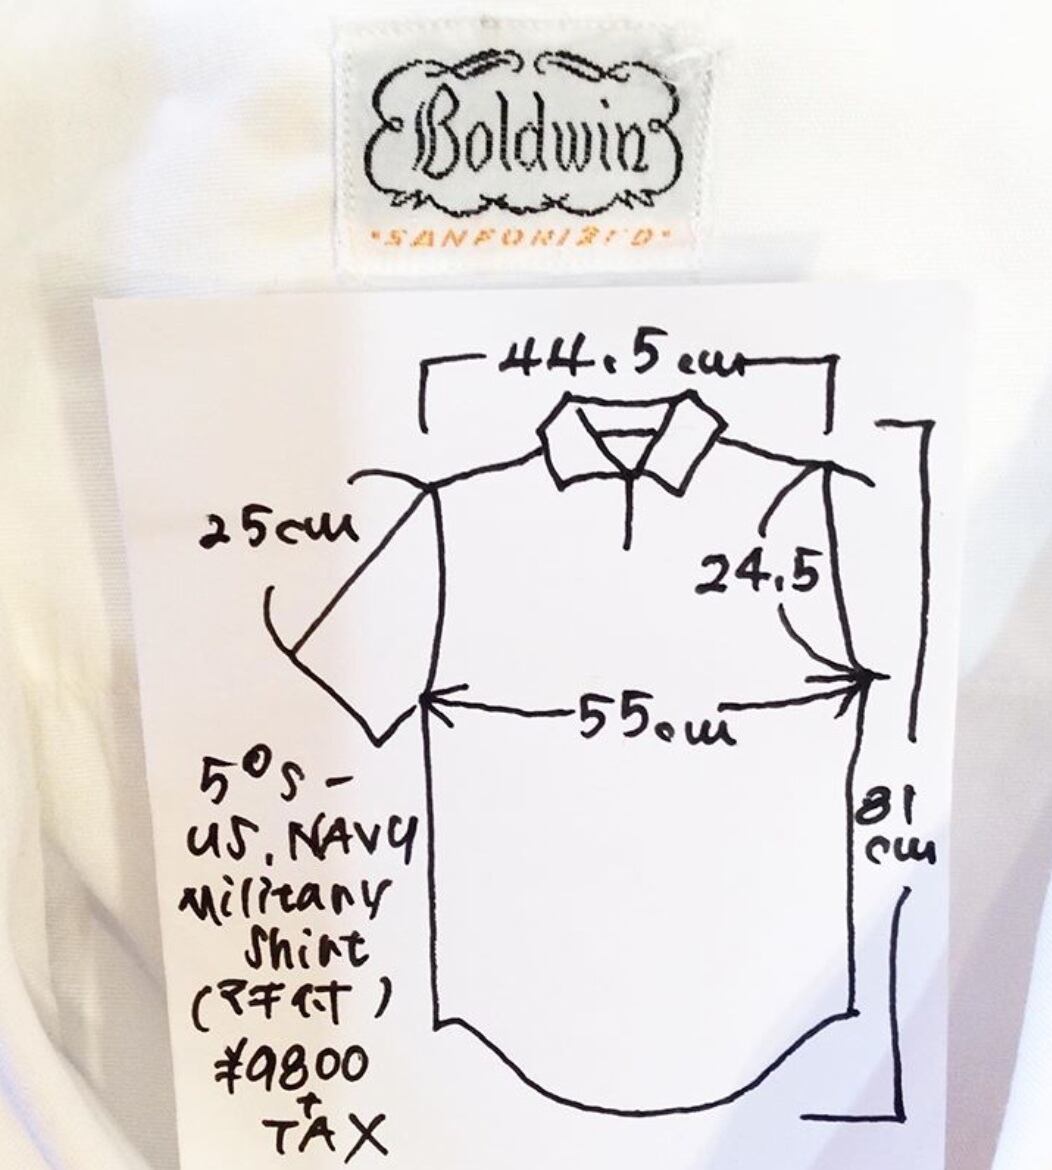 Boldwin
"SANFORIZED"
44.5cm
25cm
24.5
55cm
81
cm
5'0s-
US.NAVY
military
Shirt
(マチ付)
¥9800
+
TAX